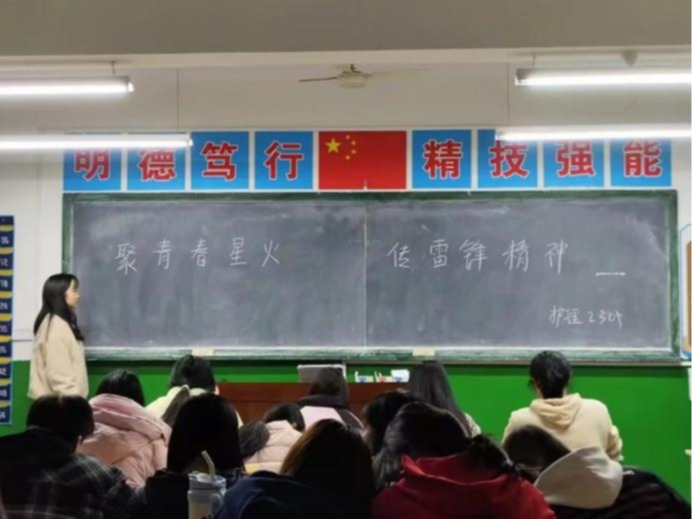 明德笃行 精技强能
聚青春星火 传雷锋精神
护理2304